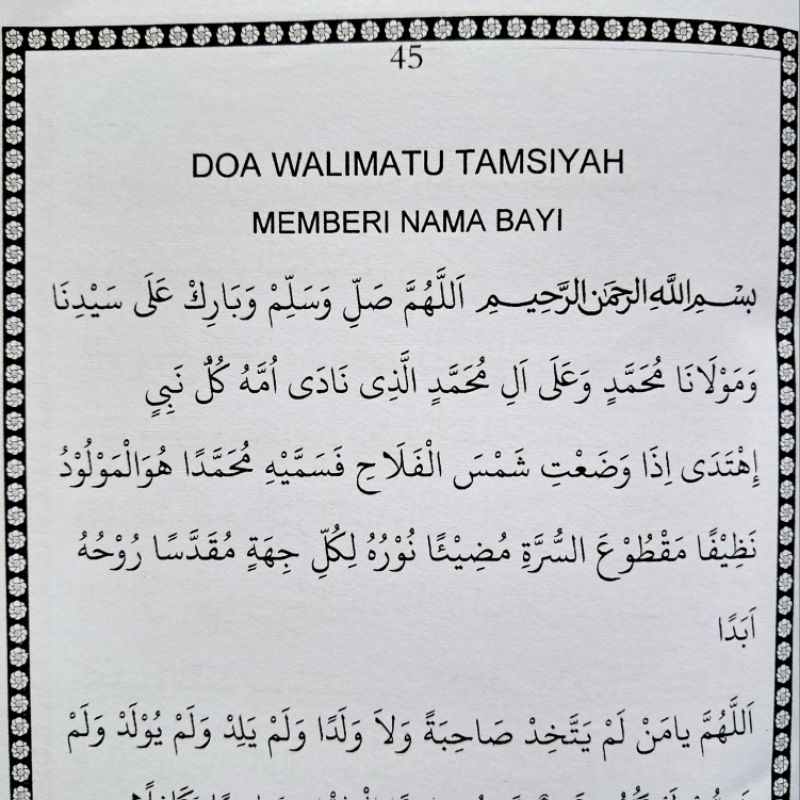 45
DOA WALIMATU TAMSIYAH
MEMBERI NAMA BAYI
بِسْمِ اللَّهِ الرَّحْمَنِ الرَّحِيمِ اَللَّهُمَّ صَلِّ وَسَلِّمْ وَبَارِكْ عَلَى سَيِّدِنَا
وَمَوْلَانَا مُحَمَّدٍ وَعَلَى اَلِ مُحَمَّدٍ الَّذِى نَادَى اُمَّهُ كُلُّ نَبِيٍ
إِهْتَدَى اِذَا وَضَعْتِ شَمْسَ الْفَلَاحِ فَسَمَّيْهِ مُحَمَّدًا هُوَالْمَوْلُوْدُ
نَظِيْفًا مَقْطُوْعَ السُّرَّةِ مُضِيْئًا نُوْرُهُ لِكُلِّ جِهَةٍ مُقَدَّسًا رُوْحُهُ
اَبَدًا
اَللَّهُمَّ يامَنْ لَمْ يَتَّخِدْ صَاحِبَةً وَلاَ وَلَدًا وَلَمْ يَلِدْ وَلَمْ يُوْلَدْ وَلَمْ